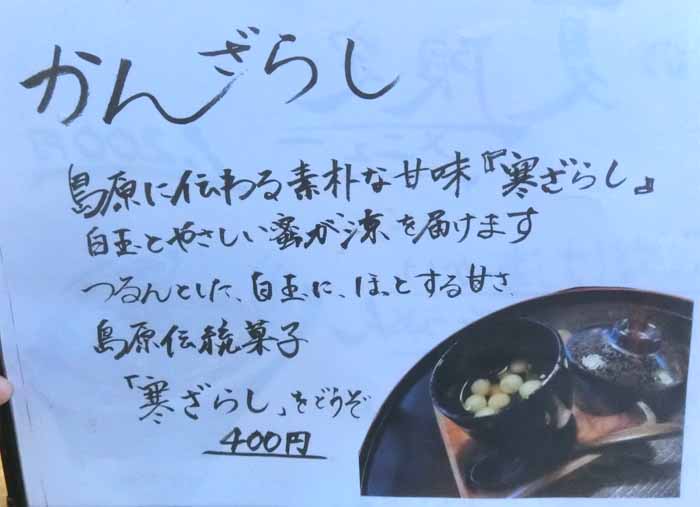 かんざらし
島原に伝わる素朴な甘味『寒ざらし』
白玉とやさしい蜜が涼を届けます
つるんとした、白玉に、ほっとする甘さ
島原伝統菓子
「寒ざらし」をどうぞ
400円